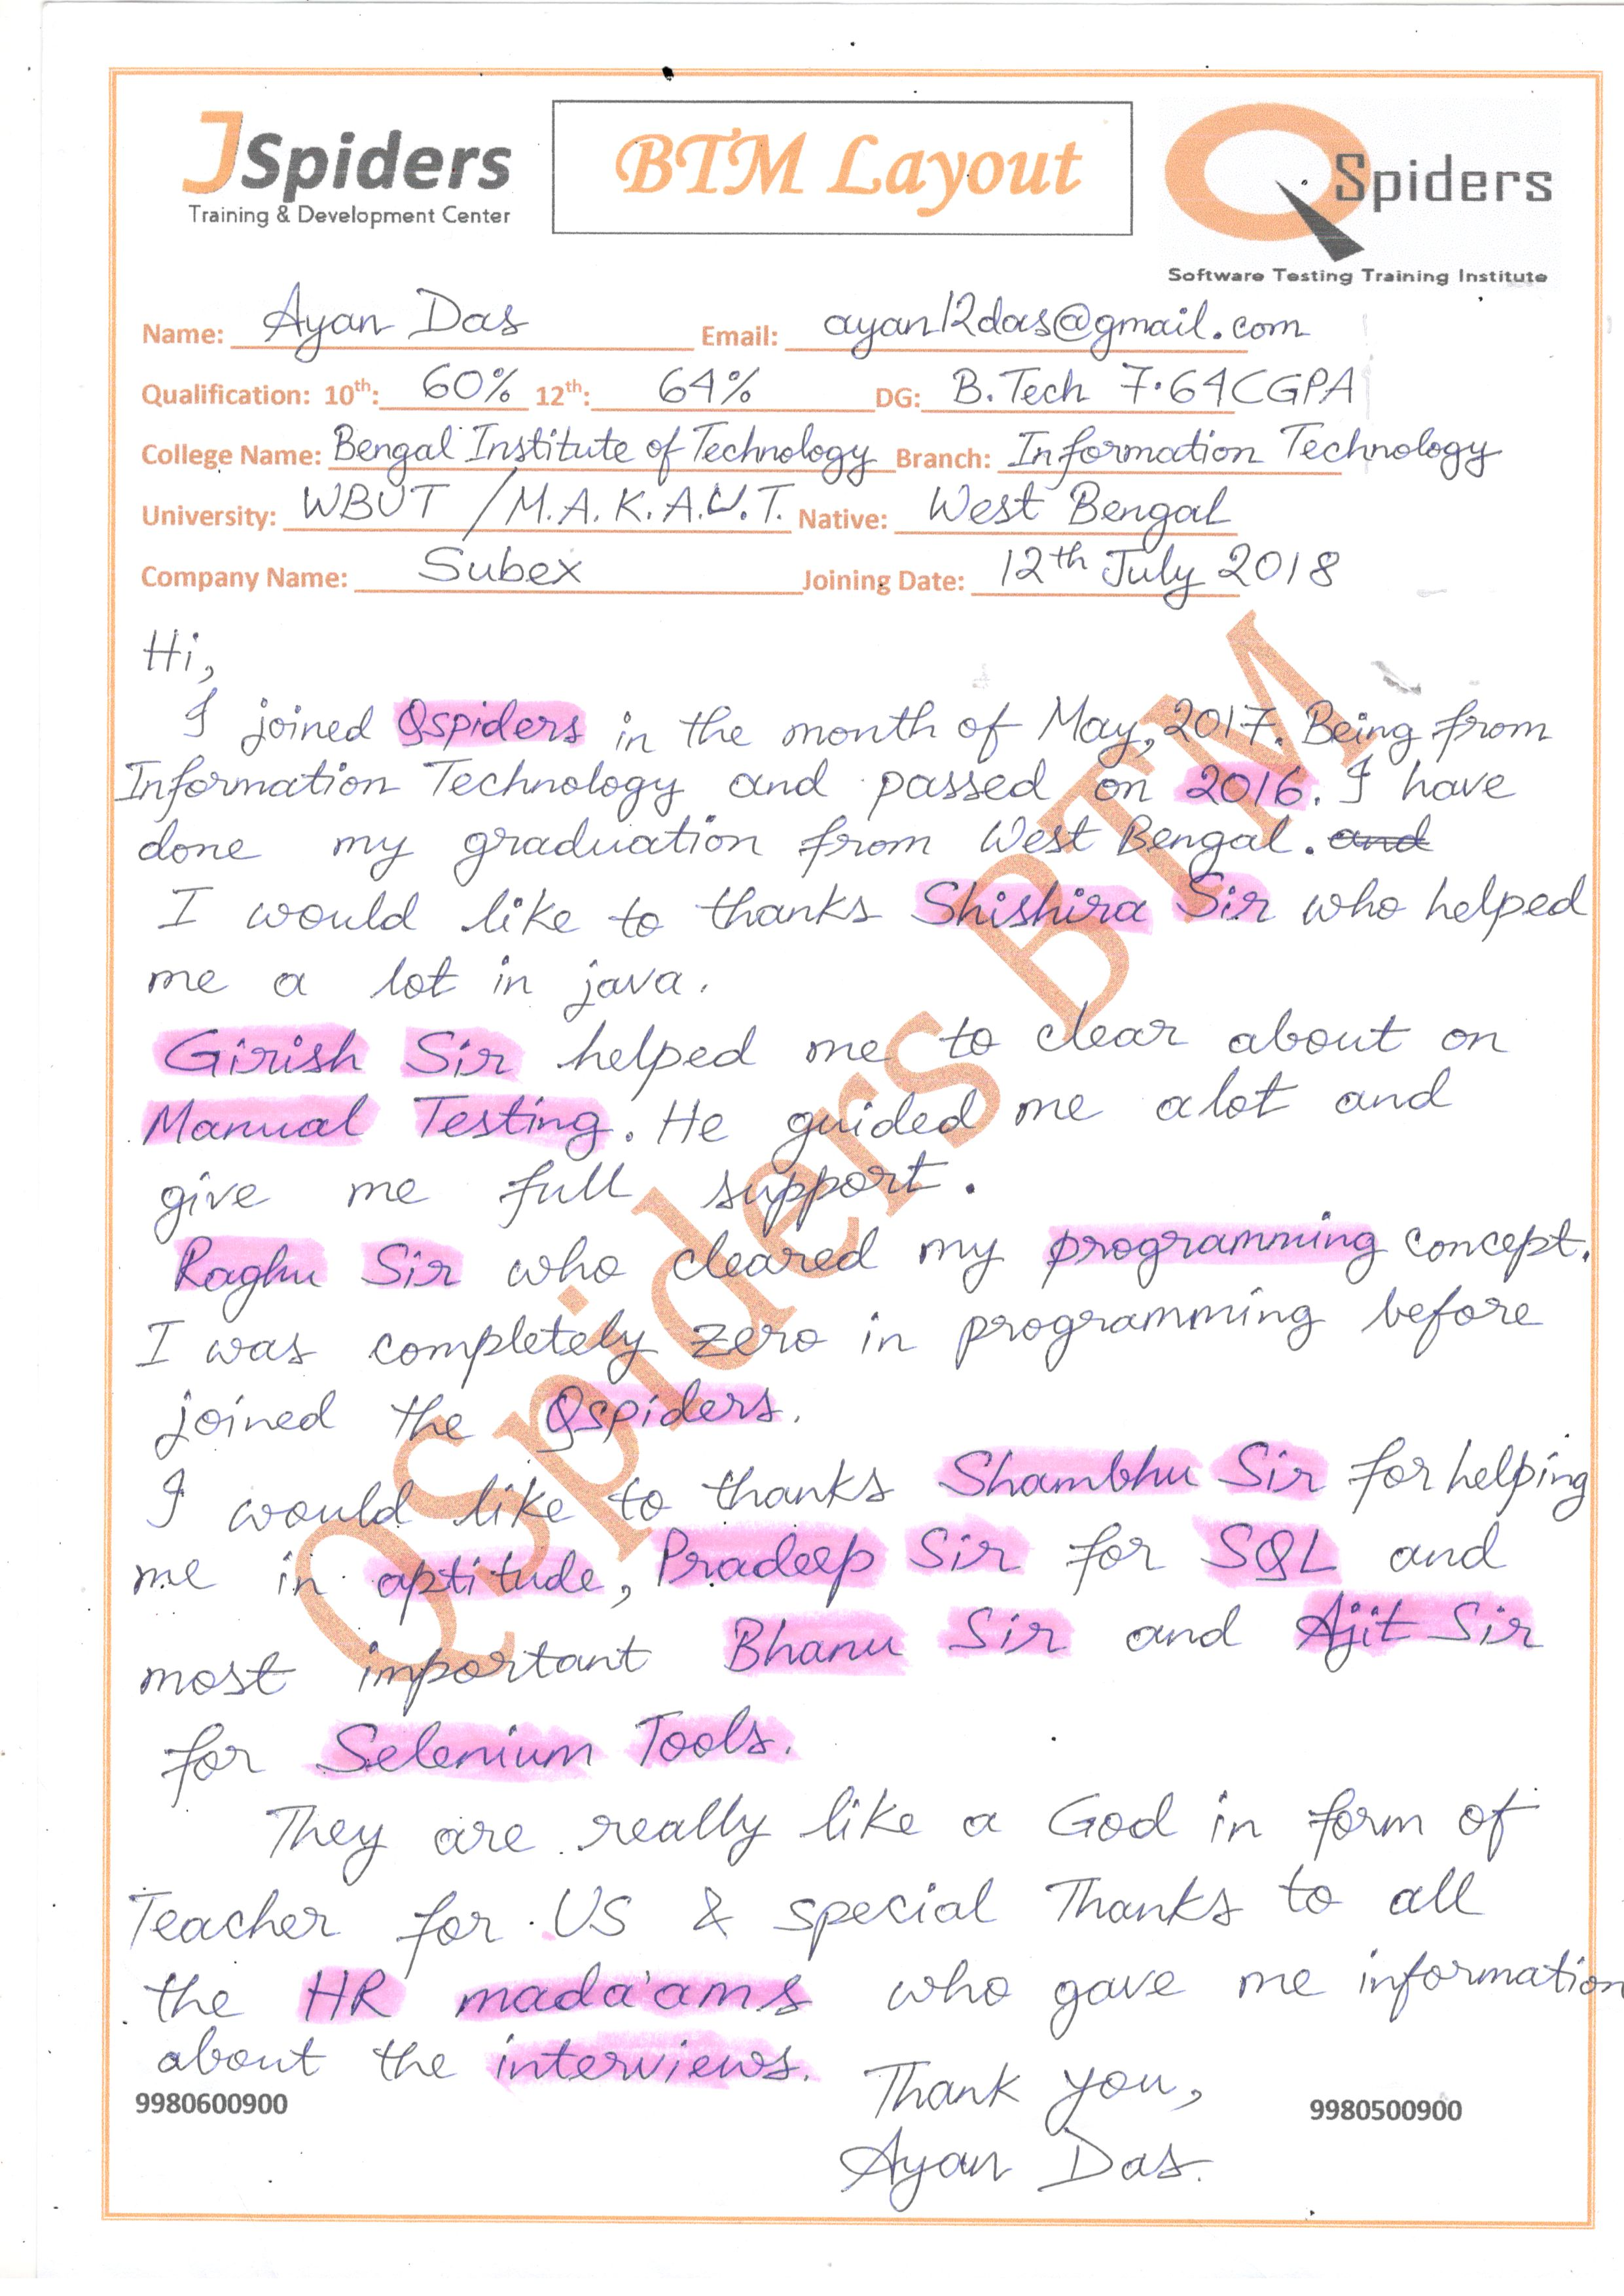 JSpiders
Training & Development Center
BTM Layout
QSpiders
Software Testing Training Institute
Name: Ayan Das Email: ayan12das@gmail.com
Qualification: 10th: 60% 12th: 64% DG: B.Tech 7.64CGPA
College Name: Bengal Institute of Technology Branch: Information Technology
University: WBUT / M.A.K.A.U.T. Native: West Bengal
Company Name: Subex Joining Date: 12th July 2018
Hi,
I joined Qspiders in the month of May, 2017. Being from
Information Technology and passed on 2016. I have
done my graduation from West Bengal. and
I would like to thanks Shishira Sir who helped
me a lot in java.
Girish Sir helped me to clear about on
Manual Testing. He guided me alot and
give me full support.
Raghu Sir who cleared my programming concept.
I was completely zero in programming before
joined the Qspiders.
I would like to thanks Shambhu Sir for helping
me in aptitude, Pradeep Sir for SQL and
most important Bhanu Sir and Ajit Sir
for Selenium Tools.
They are really like a God in form of
Teacher for US & special Thanks to all
the HR mada'ams who gave me information
about the interviews.
Thank you,
Ayan Das.
9980600900
9980500900
QSpiders BTM